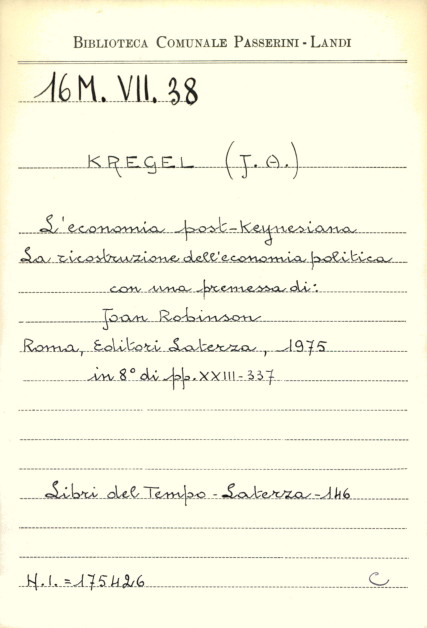 BIBLIOTECA COMUNALE PASSERINI - LANDI
16 M. VII. 38
KREGEL (J. A.)
L'economia post-Keynesiana
La ricostruzione dell'economia politica
con una premessa di:
Joan Robinson
Roma, Editori Laterza, 1975
in 8° di pp. XXIII-337
Libri del Tempo - Laterza - 146
N.I. = 175426
C